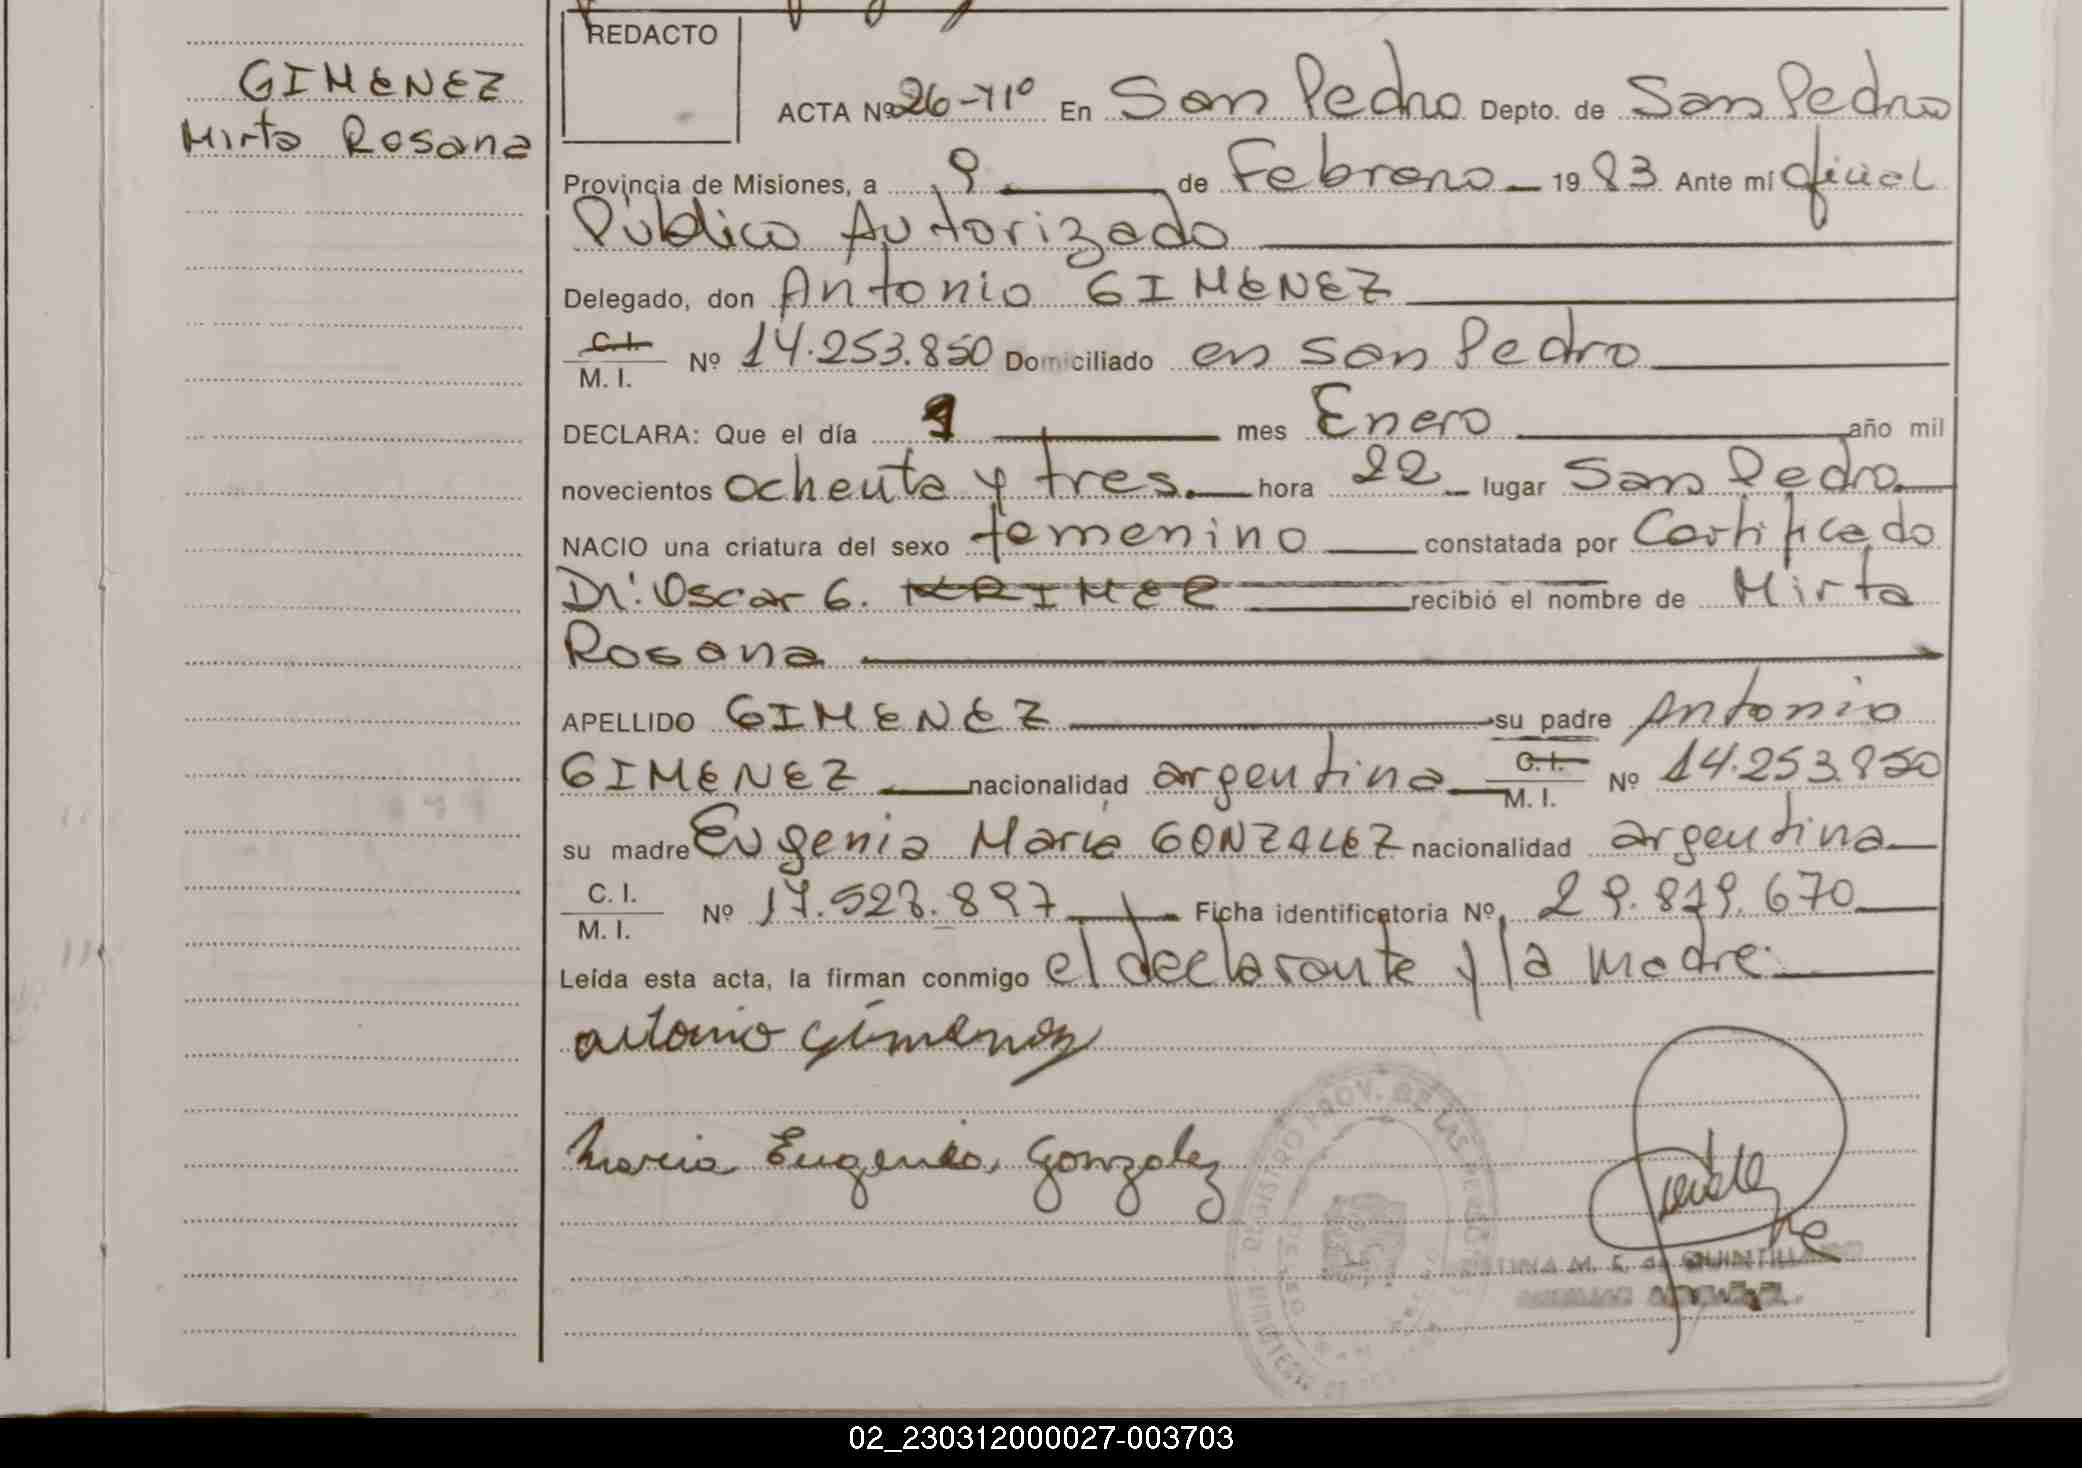 REDACTO
GIMENEZ
Mirta Rosana
ACTA Nº 26-T1º En San Pedro Depto. de San Pedro
Provincia de Misiones, a 9 de Febrero 1983 Ante mí oficial
Público Autorizado
Delegado, don Antonio GIMENEZ
C.I. M.I. Nº 14.253.850 Domiciliado en San Pedro
DECLARA: Que el día mes Enero año mil
novecientos ochenta y tres. hora 22 lugar San Pedro
NACIO una criatura del sexo femenino constatada por Certificado
Dr: Oscar G. KRIMER recibió el nombre de Mirta
Rosana
APELLIDO GIMENEZ su padre Antonio
GIMENEZ nacionalidad argentina C.I. M.I. Nº 14.253.850
su madre Eugenia María GONZALEZ nacionalidad argentina
C.I. M.I. Nº Ficha identificatoria Nº 29.819.670
Leída esta acta, la firman conmigo el declarante y la madre.
antonio Gimenez
Maria Eugenia Gonzalez
REGISTRO PROV. DE LAS
M. E. de QUINTILLANO
02_230312000027-003703